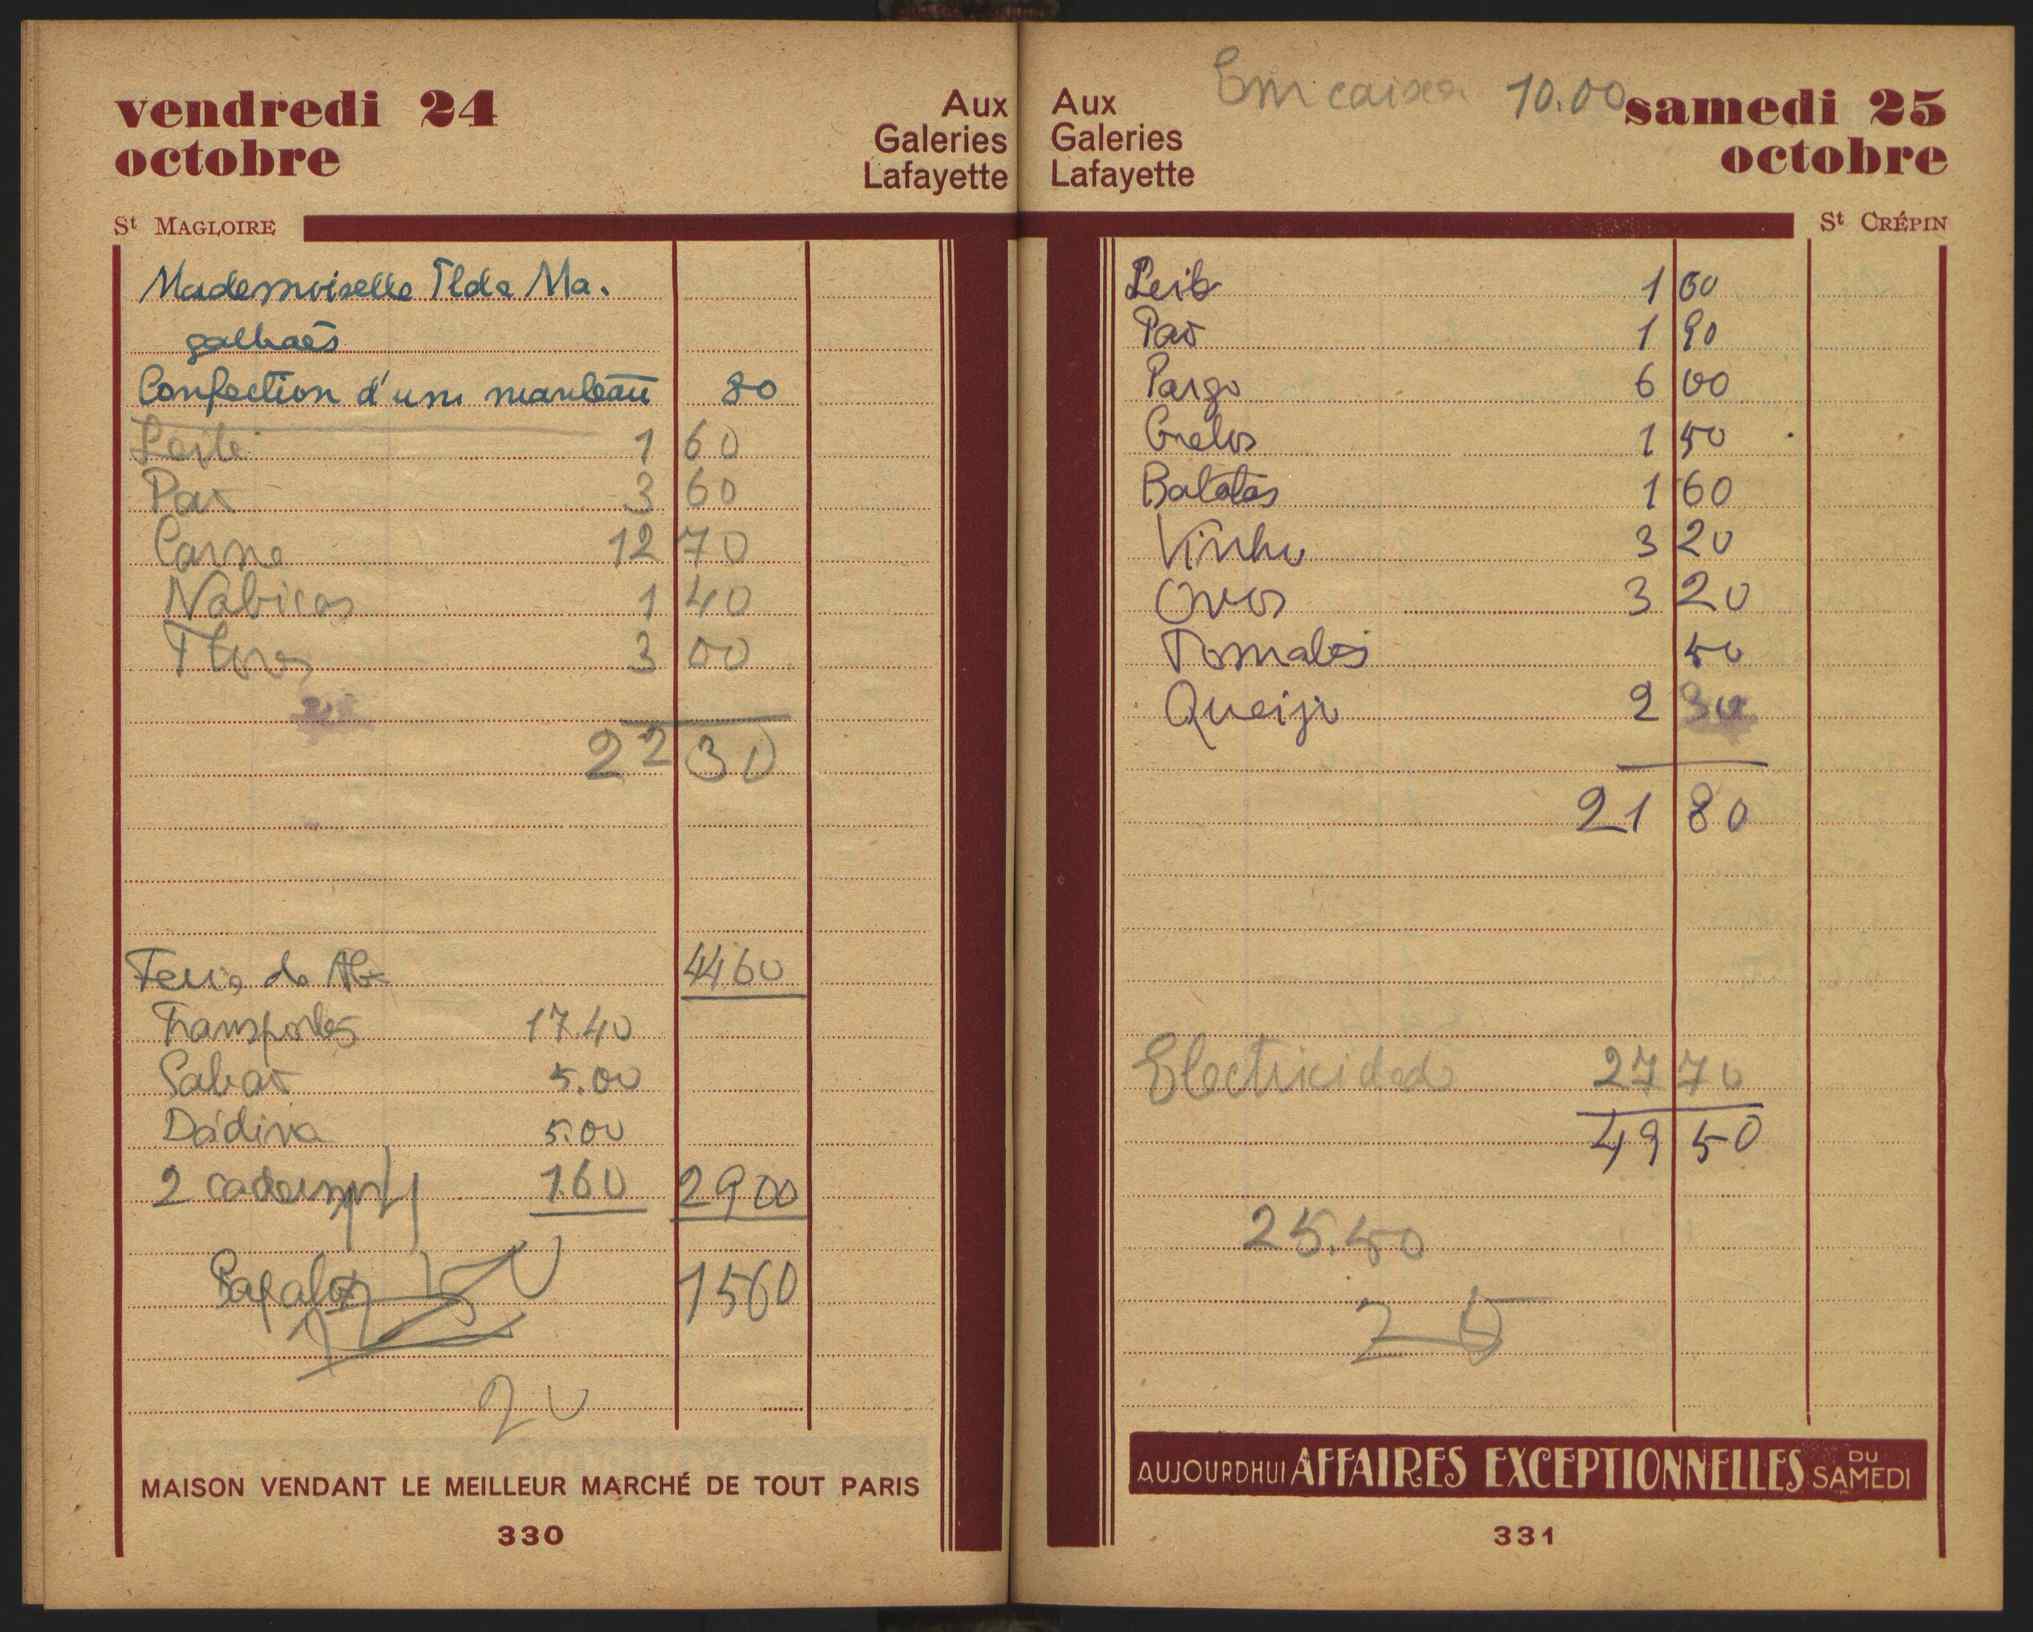 vendredi 24
octobre
Aux
Galeries
Lafayette
St MAGLOIRE
Mademoiselle Ilda Ma.
galhaēs
Confection d'un manteau 80
Leite 1 60
Pão 3 60
Carne 12 70
Nabiças 1 40
Flores 3 00
22 30
Feria da 44 60
Transportes 17.40
Sabão 5.00
Dádiva 5.00
2 cadernos 1.60 29 00
15 60
20
MAISON VENDANT LE MEILLEUR MARCHÉ DE TOUT PARIS
330
Em caixa 10.00
Aux
Galeries
Lafayette
samedi 25
octobre
St CRÉPIN
Leite 1 60
Pão 1 90
Pargo 6 00
Grelos 1 50
Batatas 1 60
Vinho 3 20
Ovos 3 20
Tomates 50
Queijo 2 30
21 80
Electricidade 27 70
49 50
25.50
25
AUJOURDHUI AFFAIRES EXCEPTIONNELLES DU SAMEDI
331